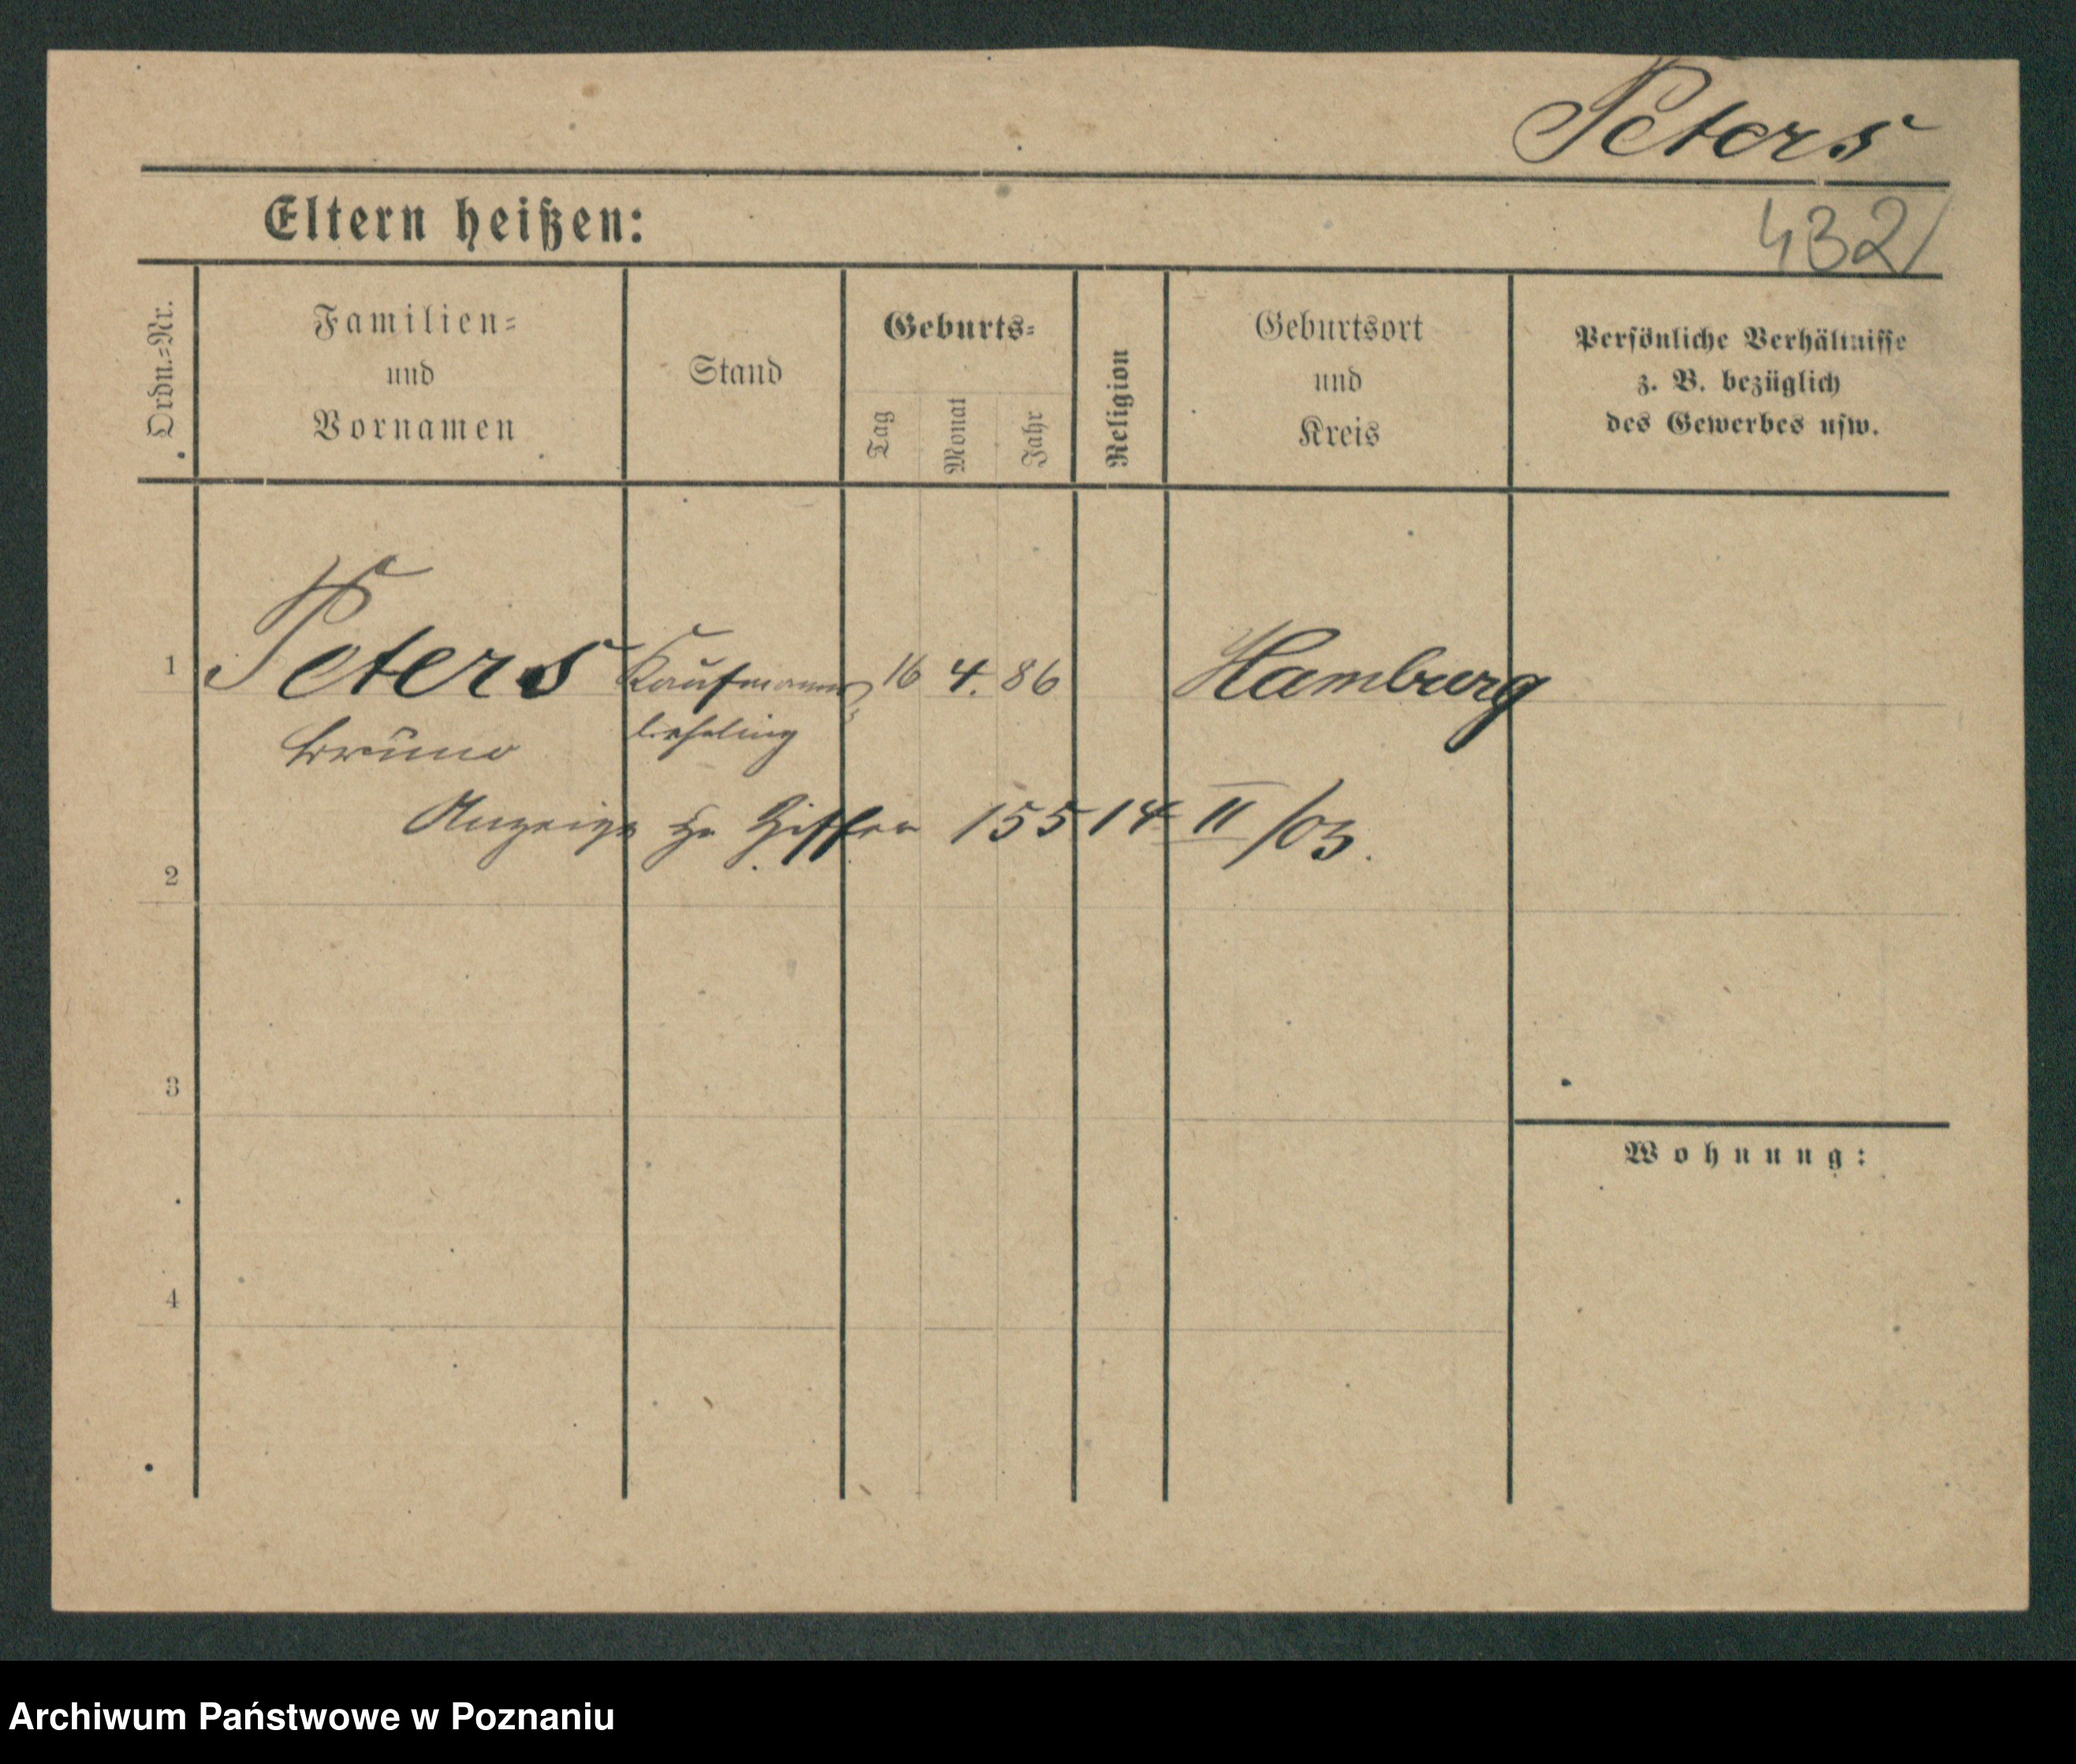 Peters
Eltern heißen:
432/
Ordn.=Nr.
Familien=
und
Vornamen
Stand
Geburts=
Tag
Monat
Jahr
Religion
Geburtsort
und
Kreis
Persönliche Verhältnisse
z. B. bezüglich
des Gewerbes usw.
1 Peters Kaufmanns 16 4. 86 Hamburg
Bruno lehrling
Anzeige zu Ziffer 155 14 II /03.
2
3
Wohnung:
4
Archiwum Państwowe w Poznaniu